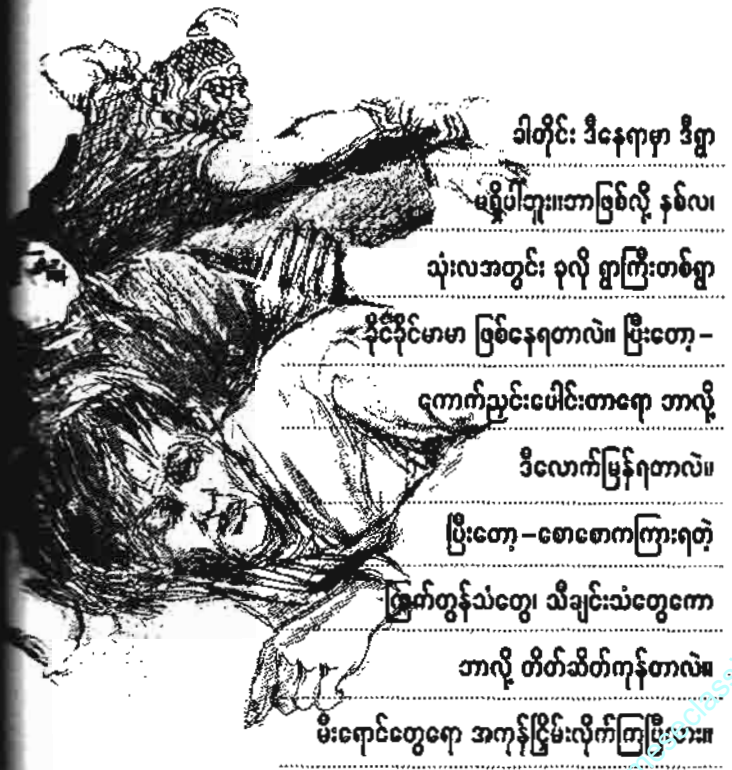 ခါတိုင်း ဒီနေရာမှာ ဒီရွာ
မရှိပါဘူး။ဘာဖြစ်လို့ နှစ်လ၊
သုံးလအတွင်း ခုလို ရွာကြီးတစ်ရွာ
ခိုင်ခိုင်မာမာ ဖြစ်နေရတာလဲ။ ပြီးတော့–
ကောက်ညှင်းပေါင်းတာရော ဘာလို့
ဒီလောက်မြန်ရတာလဲ။
ပြီးတော့–စောစောကကြားရတဲ့
ကြက်တွန်သံတွေ၊ သီချင်းသံတွေကော
ဘာလို့ တိတ်ဆိတ်ကုန်တာလဲ။
မီးရောင်တွေရော အကုန်ငြှိမ်းလိုက်ကြပြီလား။